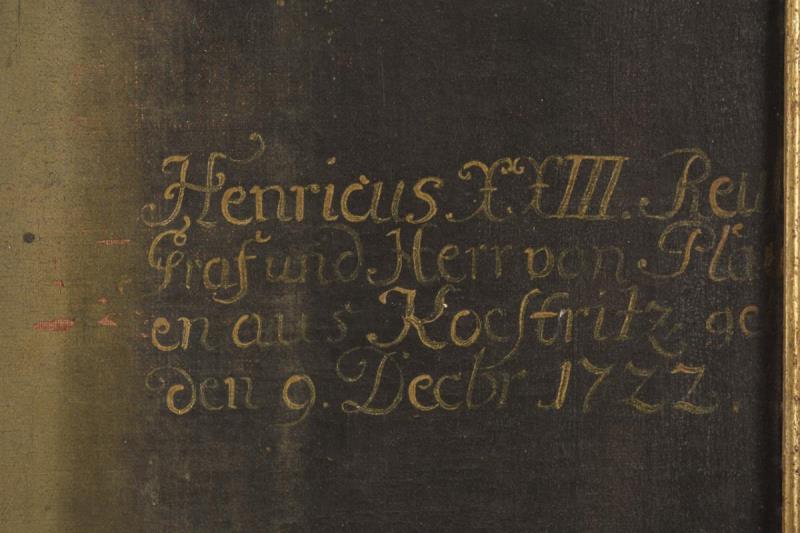 Henricus XXIII. Reu
Graf und Herr von Pla
en aus Kocſtritz ge
den 9. Decbr 1722.